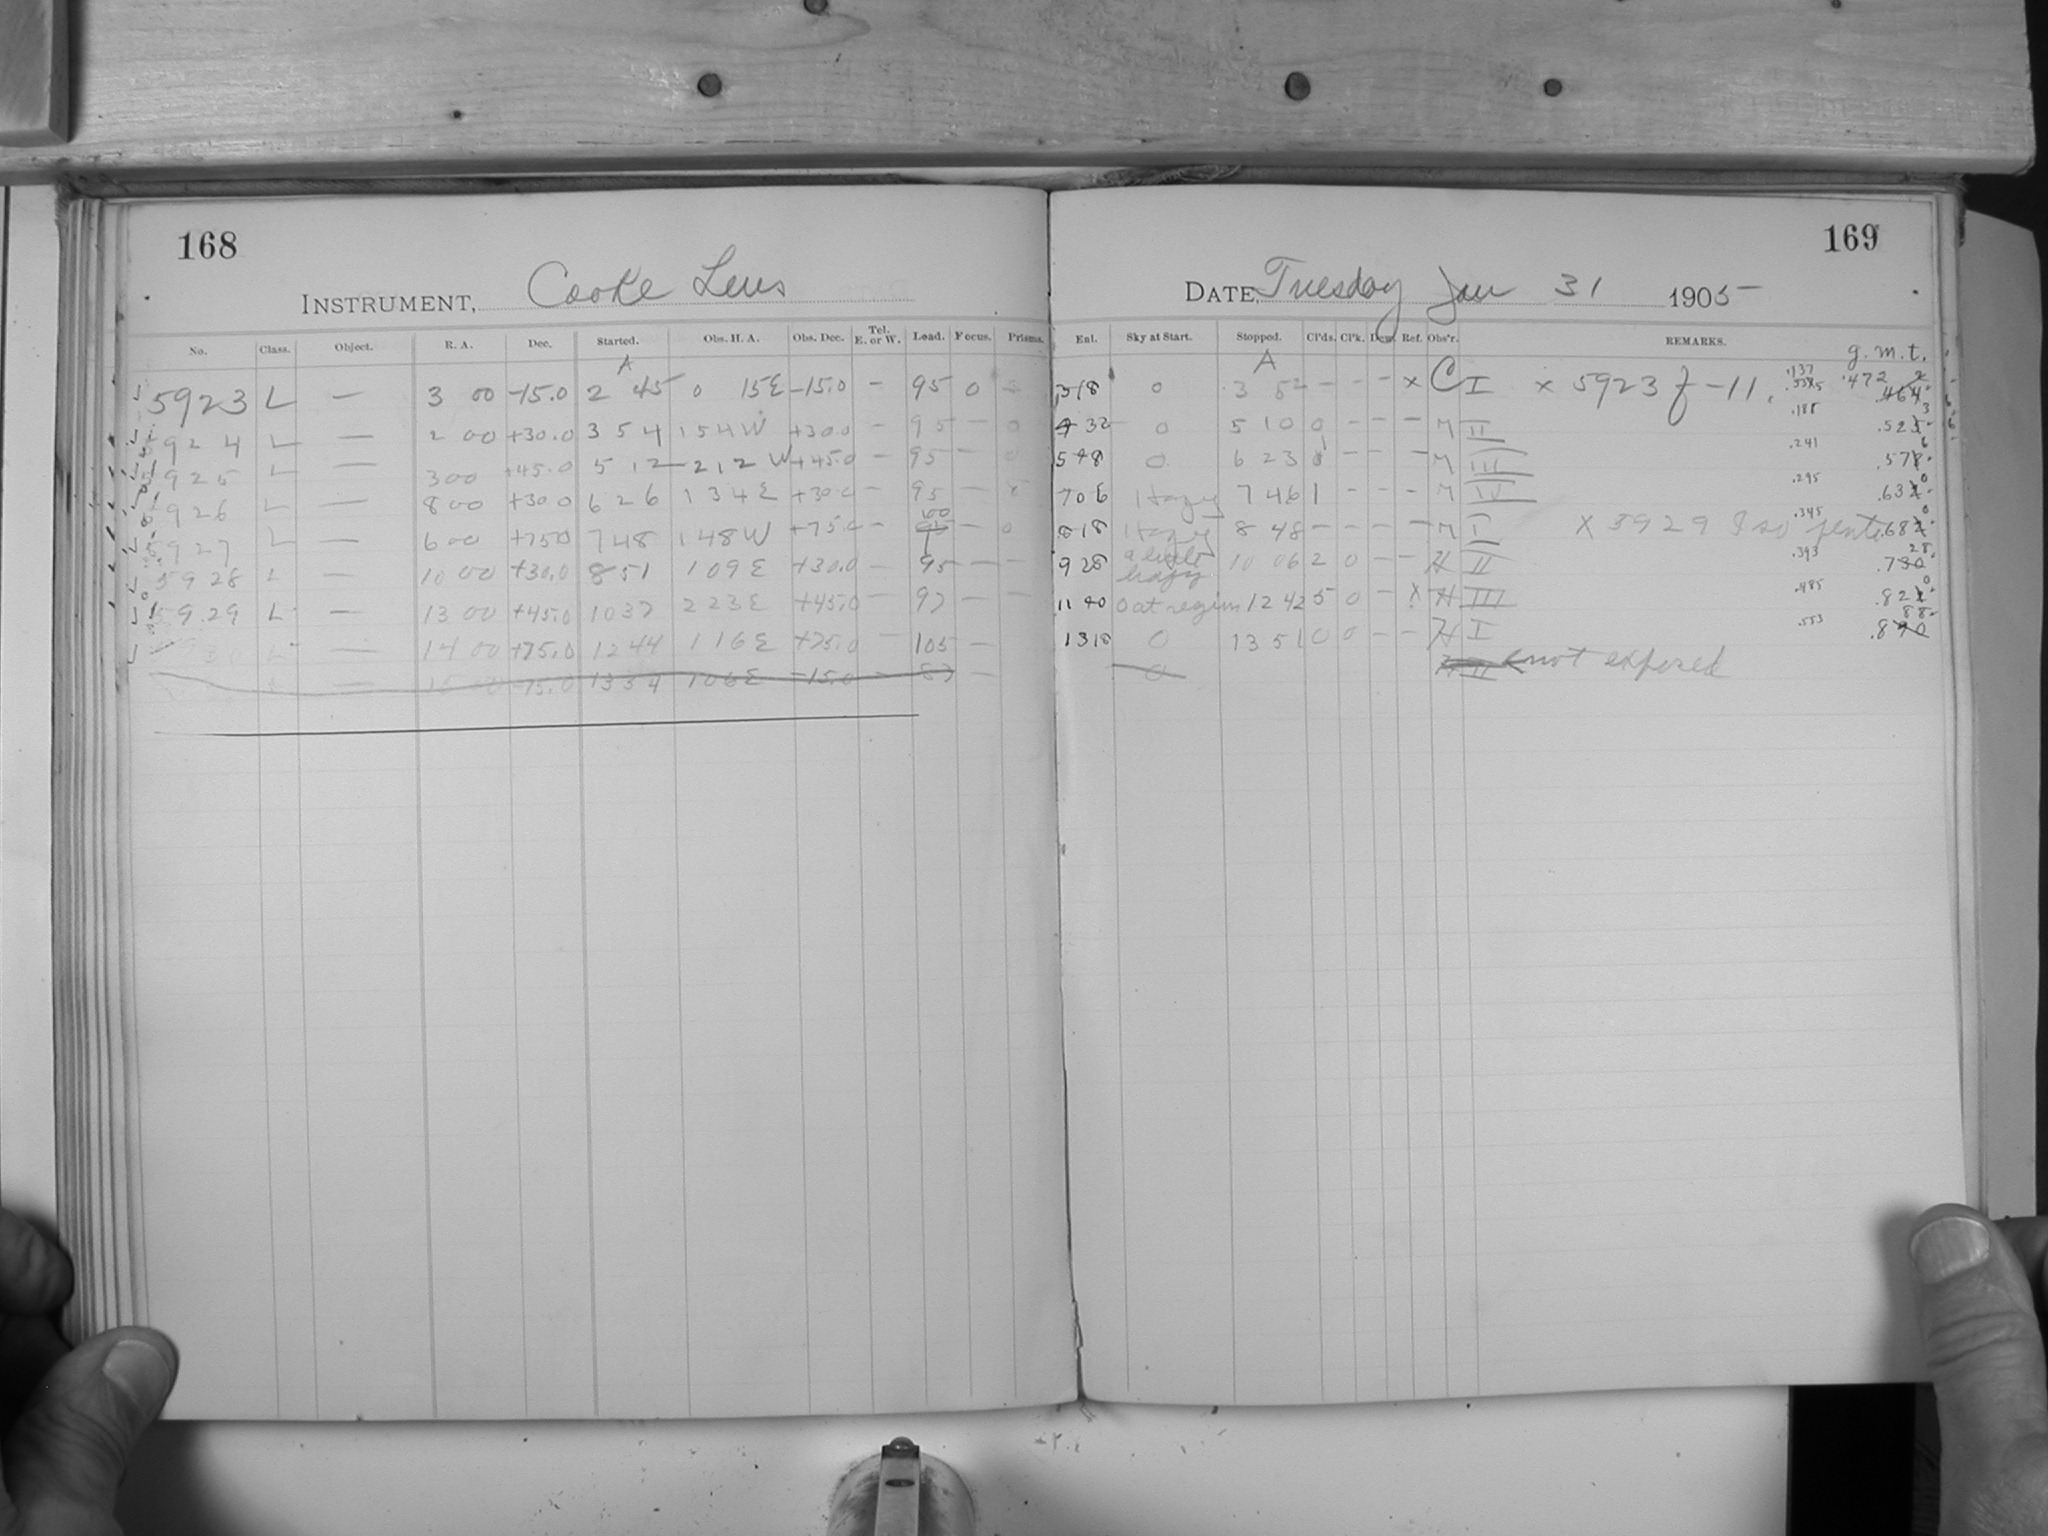 168
INSTRUMENT, Cooke Lens
No. Class. Object. R. A. Dec. Started. Obs. H. A. Obs. Dec. Tel. E. or W. Load. Focus. Prisms.
A
5923 L — 3 00 -15.0 2 45 0 15E -15.0 — 95 0
5924 L — 2 00 +30.0 3 54 1 54W +30.0 — 95 — 0
5925 L — 3 00 +45.0 5 12 2 12W +45.0 — 95 — 0
5926 L — 8 00 +30.0 6 26 1 34E +30.0 — 95 —
5927 L — 6 00 +75.0 7 48 1 48W +75.0 — 100 — 0
5928 L — 10 00 +30.0 8 51 1 09E +30.0 — 95 — —
5929 L — 13 00 +45.0 10 37 2 23E +45.0 — 97 — —
L — 14 00 +75.0 12 44 1 16E +75.0 — 105 —
— 15 00 -15.0 13 54 1 06E -15.0 — 87 —
169
DATE, Tuesday Jan 31 1905
Enl. Sky at Start. Stopped. Cl'ds. Cl'k. Dew. Ref. Obs'r. REMARKS.
g.m.t.
A
318 0 3 52 — — — x C I x 5923 f -11. .137 .472
432 0 5 10 0 — — — M II .188 .523
548 0 6 23 1 — — — M III .241 .576
706 Hazy 7 46 1 — — — M IV .295 .630
818 Hazy 8 48 — — — — M I x 3929 I so .345 .680
928 a little hazy 10 06 2 0 — — H II .393 .728
1140 0 at region 12 42 5 0 — x H III .485 .820
1318 0 13 51 0 0 — — H I .553 .888
0 H II not exposed